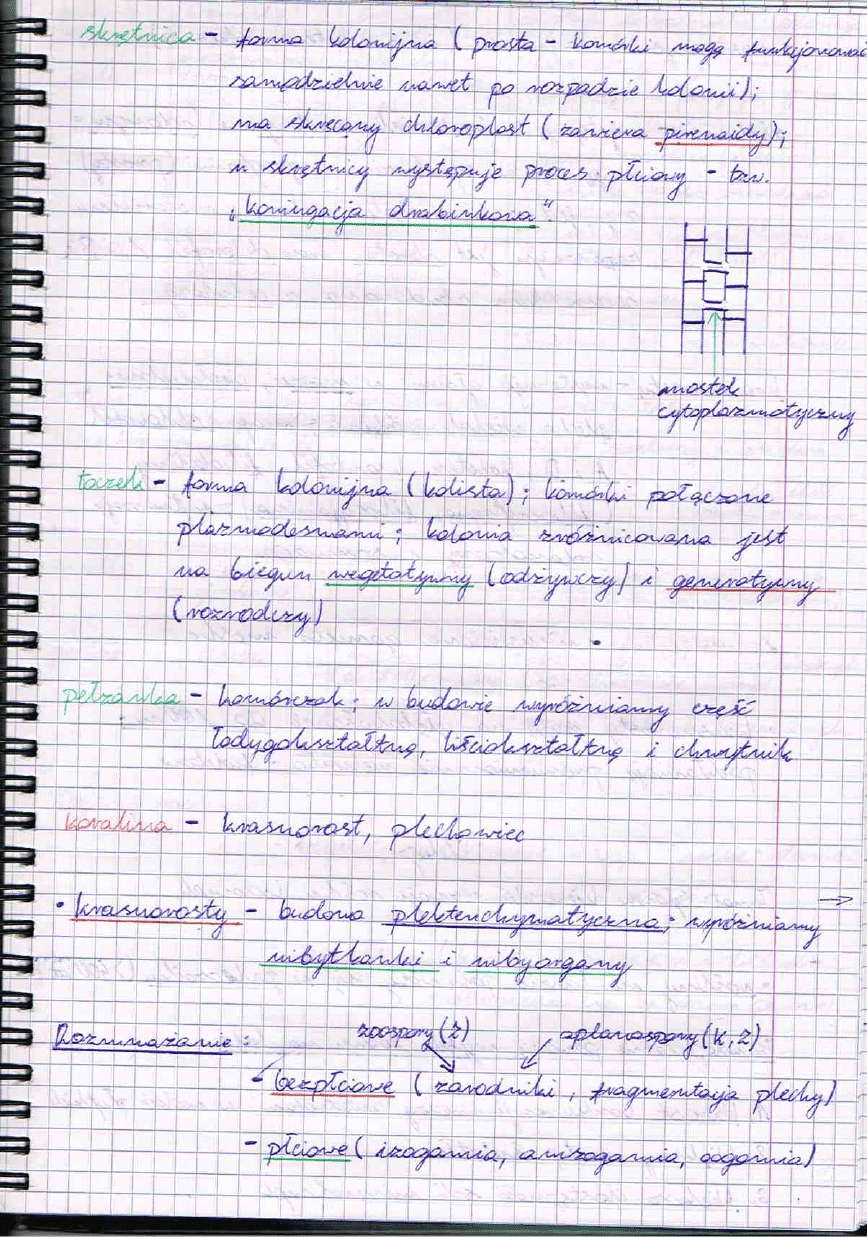 skrętnica - forma kolonijna (prosta - komórki mogą funkcjonować
samodzielnie nawet po rozpadzie kolonii);
ma skręcony chloroplast (zawiera pirenoidy);
u skrętnicy występuje proces płciowy - tzw.
„koniugacja drabinkowa".
mostek
cytoplazmatyczny
toczek - forma kolonijna (kolista); komórki połączone
plazmodesmami; kolonia zróżnicowana jest
na biegun wegetatywny (odżywczy) i generatywny
(rozrodczy)
pełzatka - komórczak; w budowie wyróżniamy część
łodygokształtną, liściokształtną i chwytnik
koralina - krasnorost, plechowiec
→
• krasnorosty - budowa plektenchymatyczna; wyróżniamy
nibytkanki i nibyorgany
zoospory (Z) aplanospory (K, Z)
Rozmnażanie:
- bezpłciowe (zarodniki, fragmentacja plechy)
- płciowe (izogamia, anizogamia, oogamia)